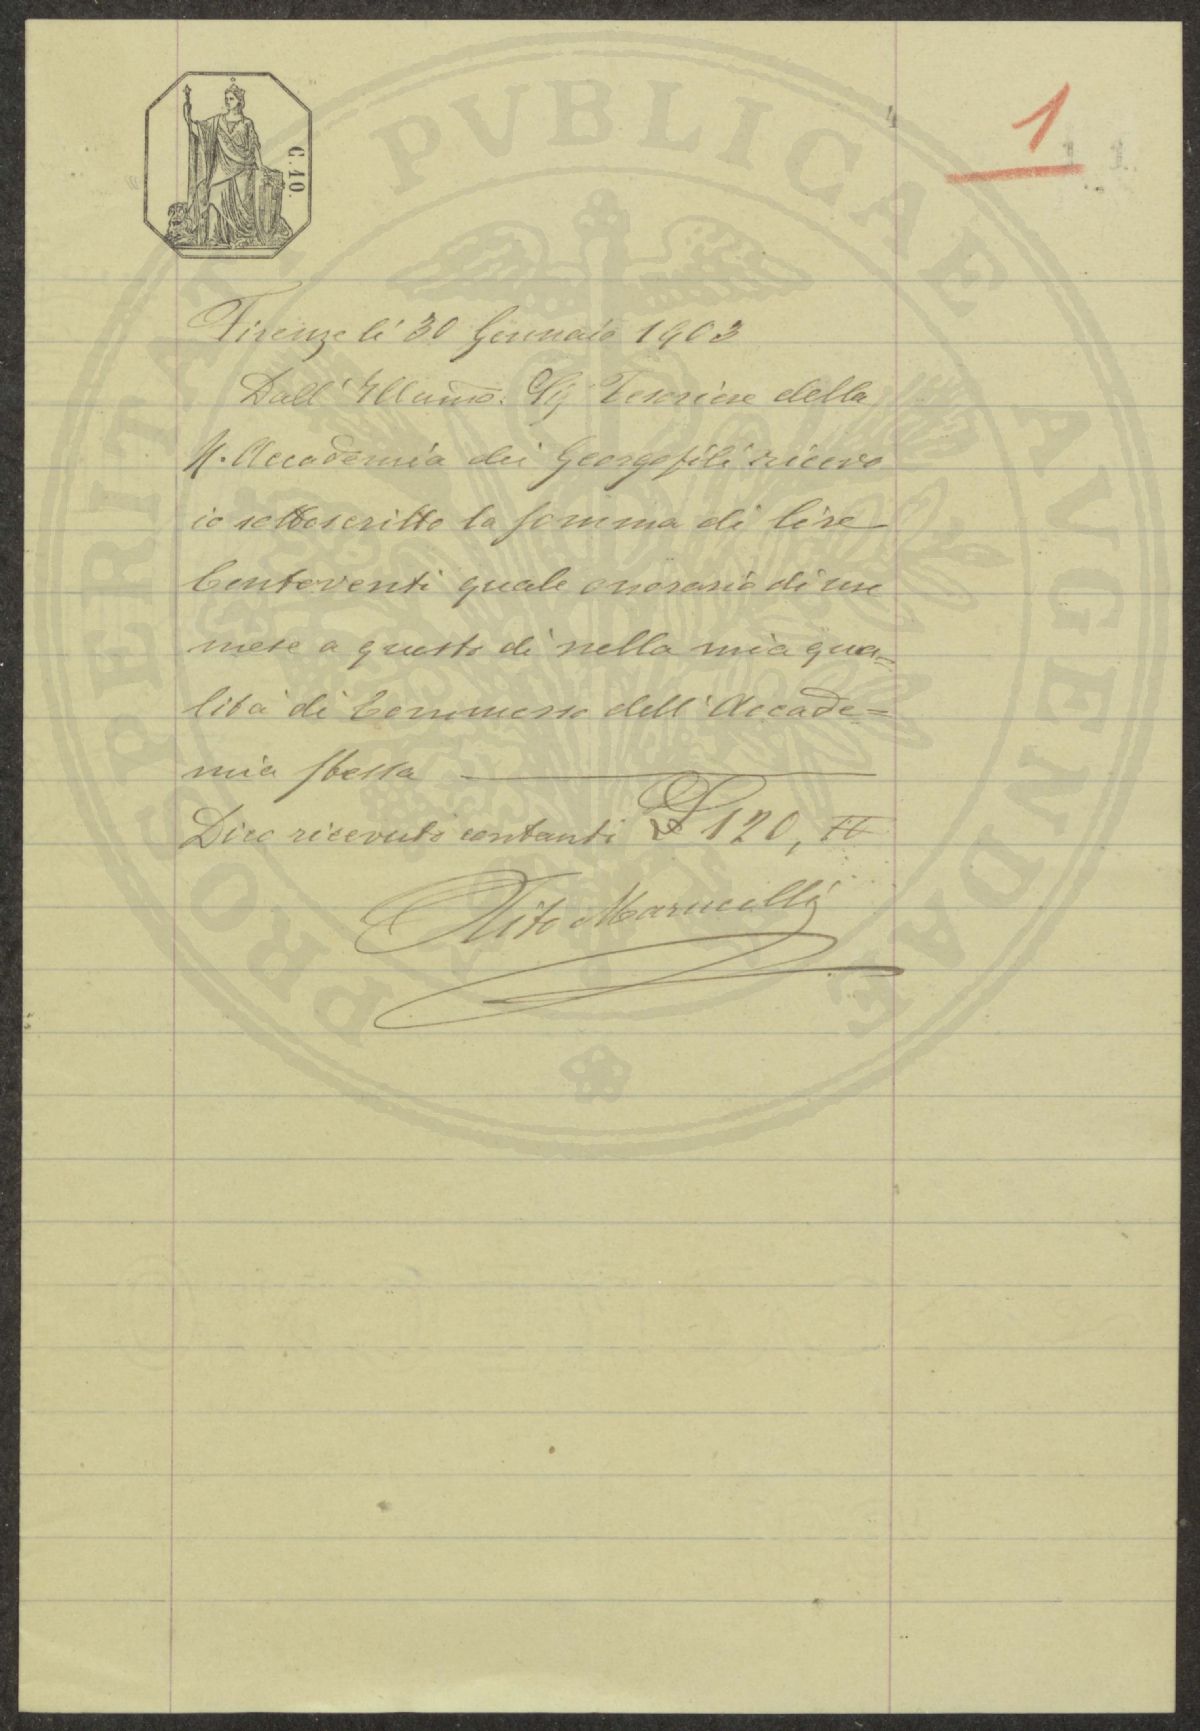 C. 10.
1
PROSPERITATI PVBLICAE AVGENDAE
Firenze li 30 Gennaio 1903
Dall' Illumo. Sig Tesoriere della
R. Accademia dei Georgofili ricevo
io sottoscritto la somma di lire
Centoventi quale onorario di un
mese a questo dì nella mia qua=
lità di Commesso dell' Accade=
mia stessa
Dico ricevute contanti £ 120,
Tito Marucelli